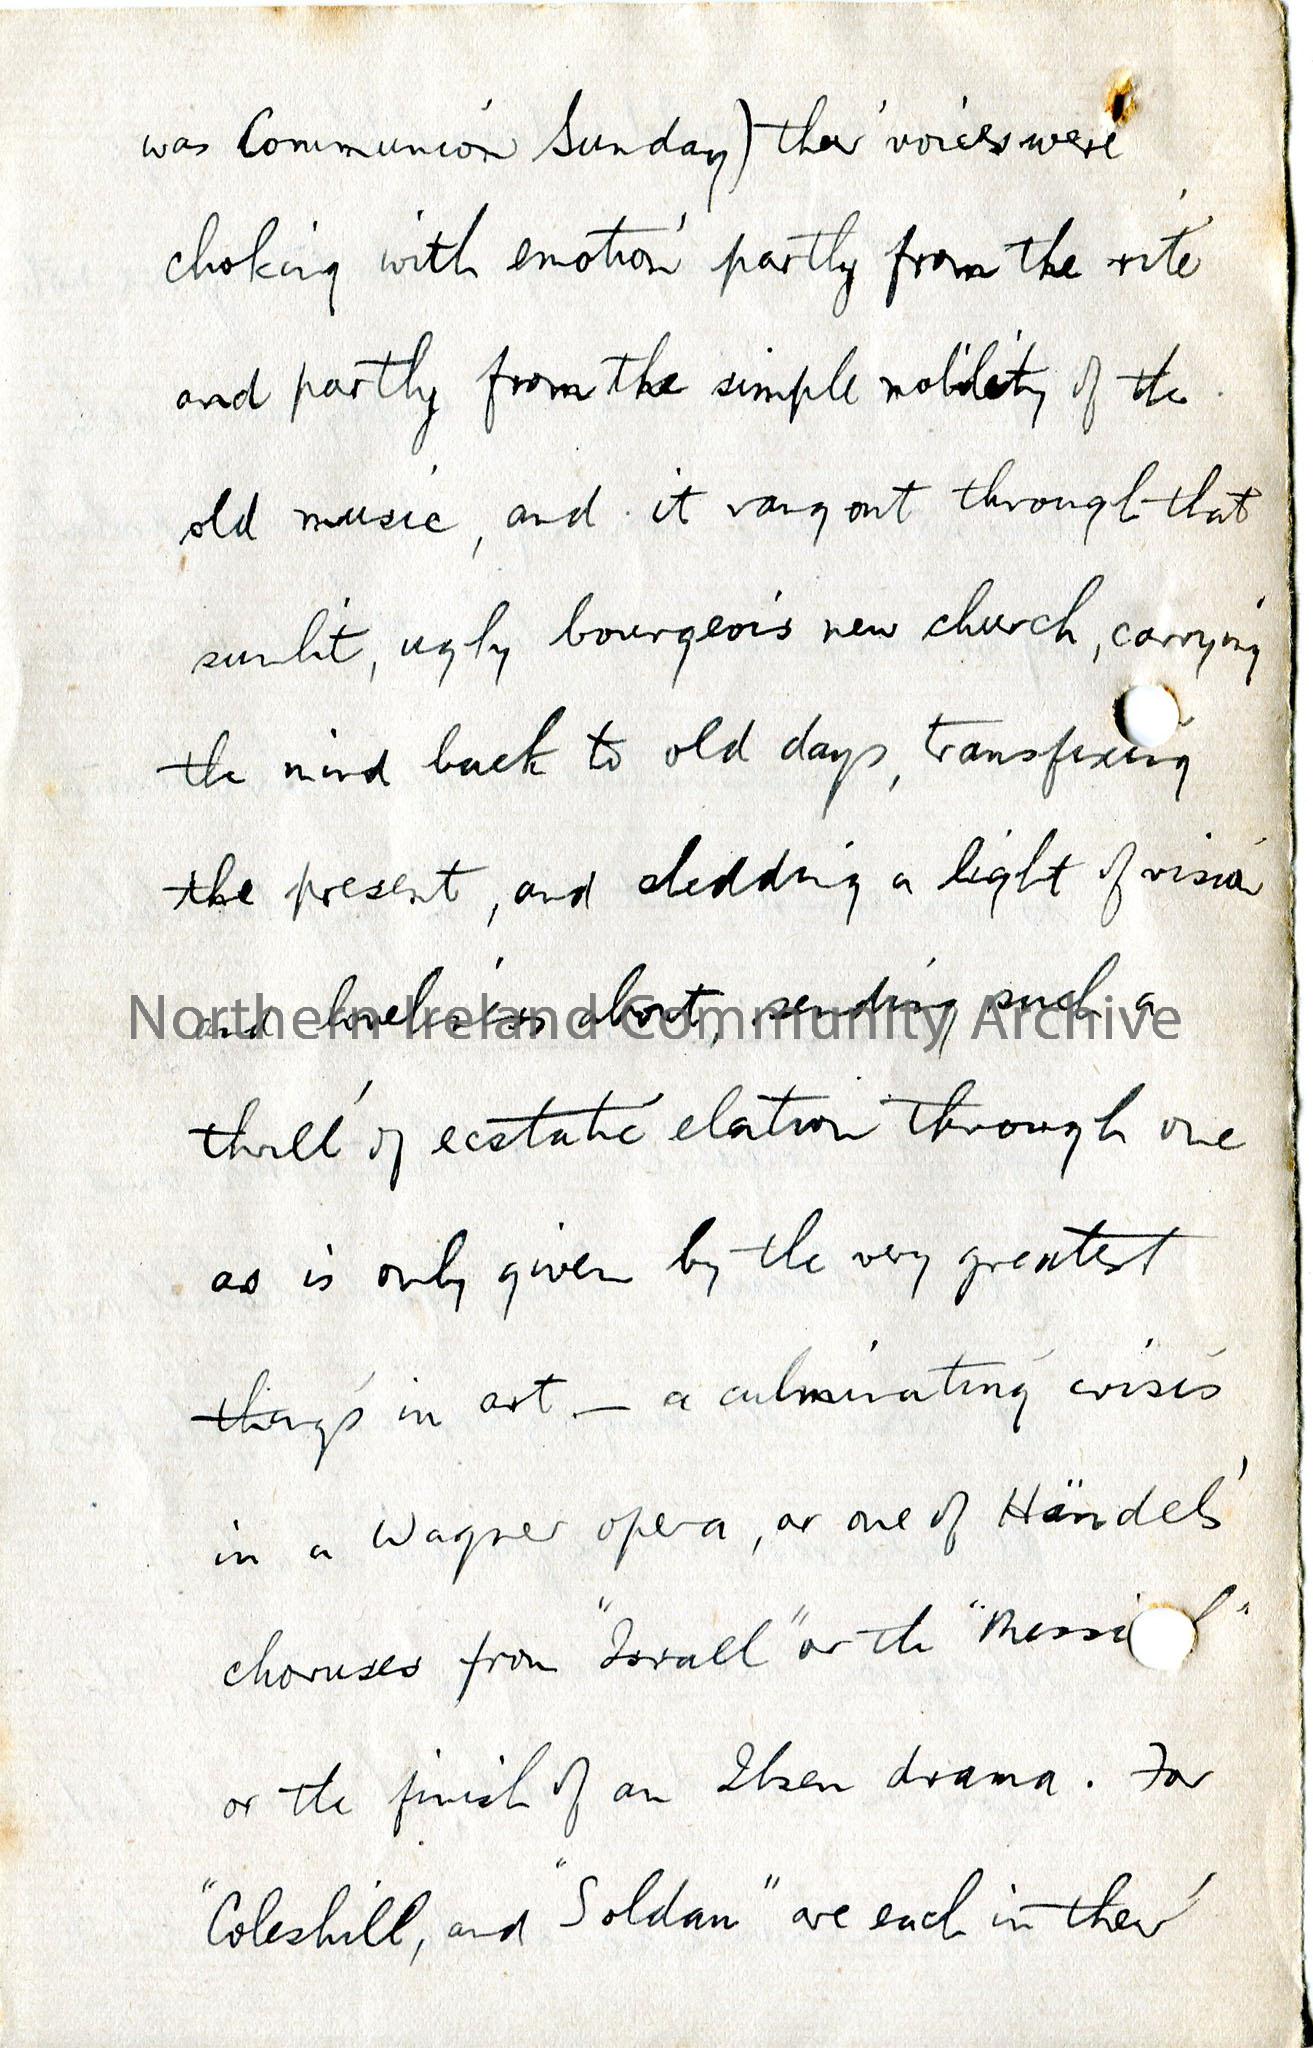 was Communion Sunday) their voices were
choking with emotion partly from the rite
and partly from the simple nobility of the
old music, and it rang out through that
sunlit, ugly bourgeois new church, carrying
the mind back to old days, transfixing
the present, and shedding a light of vision
and loveliness about, sending such a
Northern Ireland Community Archive
thrill of ecstatic elation through one
as is only given by the very greatest
things in art — a culminating crisis
in a Wagner opera, or one of Händel's
choruses from "Israel" or the "Messiah"
or the finish of an Ibsen drama. For
"Coleshill, and "Soldau" are each in their